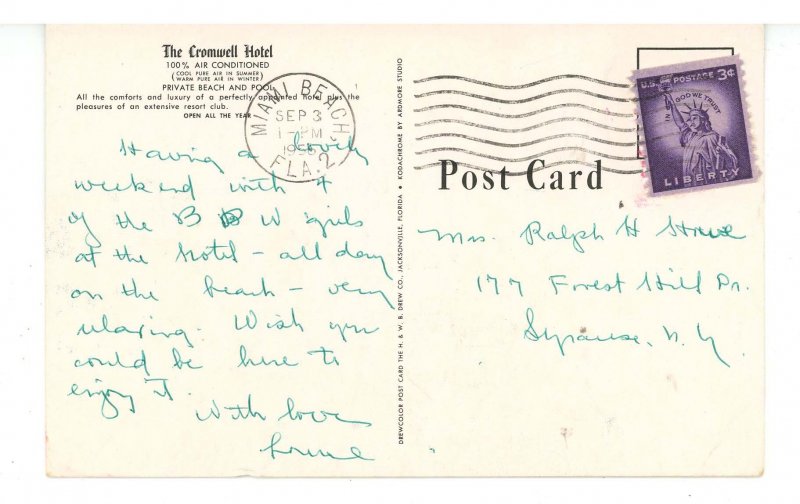 The Cromwell Hotel
100% AIR CONDITIONED
( COOL PURE AIR IN SUMMER )
( WARM PURE AIR IN WINTER )
PRIVATE BEACH AND POOL
All the comforts and luxury of a perfectly appointed hotel plus the
pleasures of an extensive resort club.
OPEN ALL THE YEAR
MIAMI BEACH
SEP 3
1-PM
FLA. 2
Having a lovely
weekend with 4
of the B B W girls
at the hotel - all day
on the beach - very
relaxing. Wish you
could be here to
enjoy it.
With love
DREWCOLOR POST CARD THE H. & W. B. DREW CO., JACKSONVILLE, FLORIDA • KODACHROME BY ARDMORE STUDIO
U.S. POSTAGE 3¢
IN GOD WE TRUST
LIBERTY
Post Card
Mrs. Ralph H
177 Forest Hill Dr.
Syracuse, N.Y.